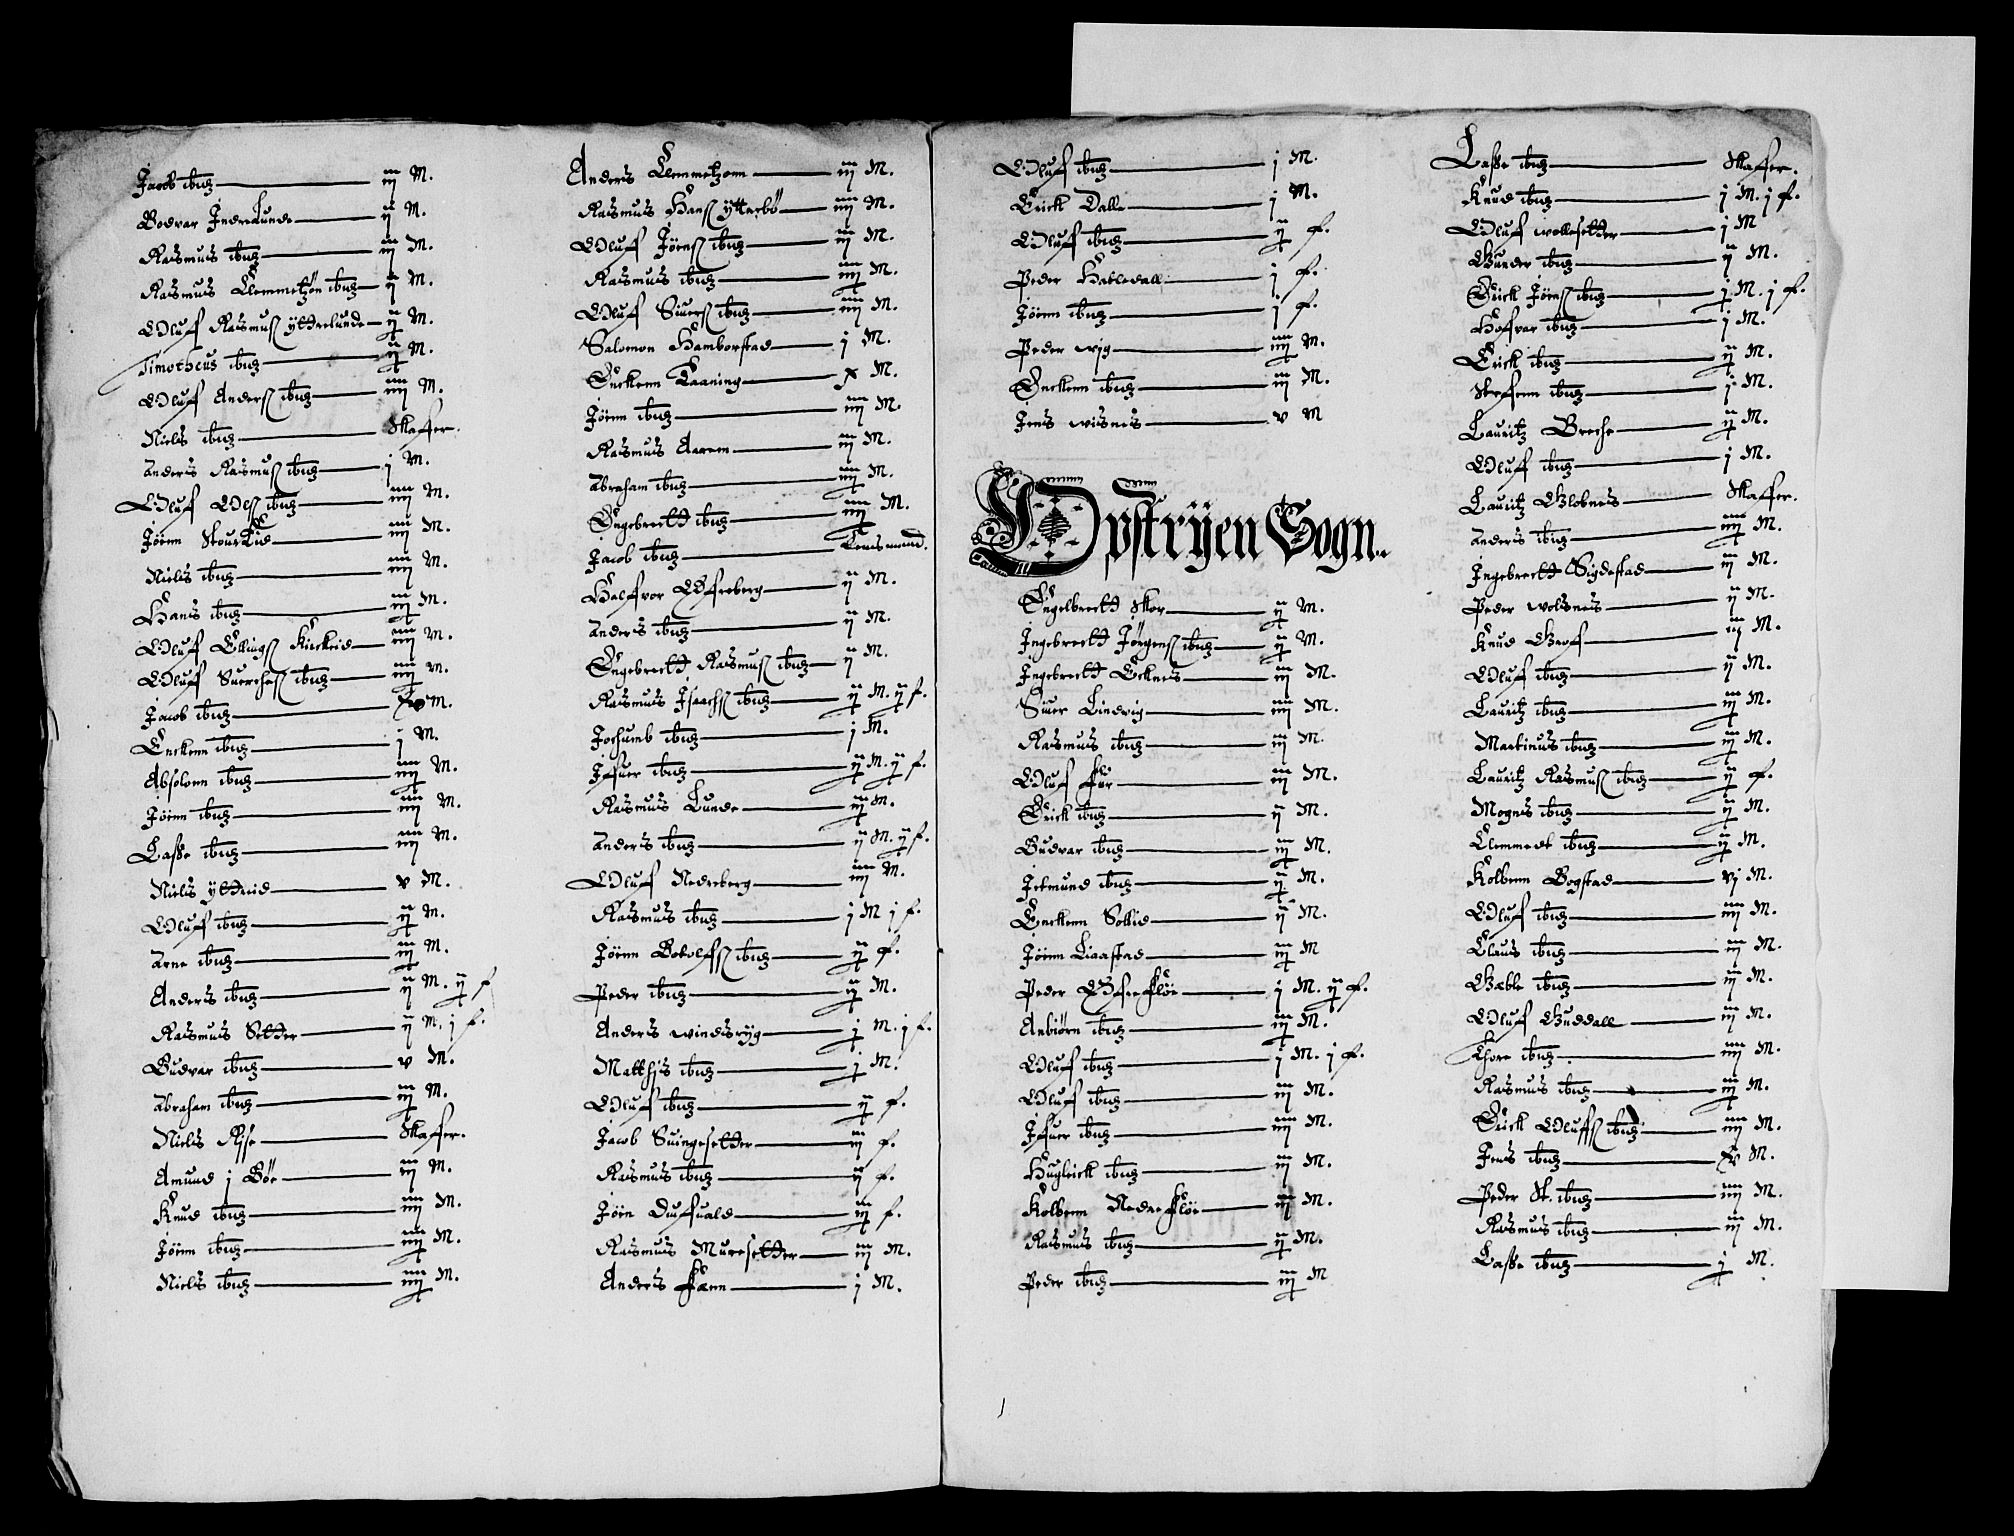 Jacob ibid iij M.
Bodvar Indrelunde ij M.
Rasmus ibid iij M.
Rasmus Clemmetzøn ibid ij M.
Oluf Rasmuß yttrelunde ij M.
Timotheus ibid ij M.
Oluf Anderß ibid iiij M.
Niels ibid Skaffer.
Anders Rasmuß ibid j M.
Oluf Olß ibid iiij M.
Jøenn iiij M.
Niels ibid iiij M.
Hans ibid iij M.
Oluf Ellingß Kirkeid iiij M.
Oluf ibid iiij M.
Jacob ibid M.
Enckenn ibid j M.
Absolonn ibid iiij M.
Jøenn ibid iiij M.
Laße ibid iiij M.
Niels yttreid v M.
Oluf ibid ij M.
Arne ibid iij M.
Anders ibid ij M. ij f
Rasmus Setter ij M. j f.
Gudvar ibid v M.
Abraham ibid iij M.
Niels Rise Skaffer.
Amund j Bøe iij M.
Knud ibid iiij M.
Jøenn ibid iiij M.
Niels ibid iiij M.
Anders Clemmetzonn iij M.
Rasmus Hanß ytterbø iiij M.
Oluf Jøenß ibid iij M.
Rasmus ibid iiij M.
Oluf Siuerß ibid iiij M.
Salomon Hamborstad j M.
Enckenn Taaning x M.
Jøenn ibid iiij M.
Rasmus Aarem iij M.
Abraham ibid iiij M.
Engebrectt ibid iiij M.
Jacob ibid Lensmand.
Halfvor Ofreberg ij M.
Anders ibid ij M.
Engebrectt Rasmuß ibid ij M.
Rasmus Isachß ibid ij M. ij f.
Jochumb ibid j M.
Ifuer ibid ij M. ij f
Rasmus Lunde iij M.
Anders ibid ij M. ij f.
Oluf Nedreberg iiij M.
Rasmus ibid j M j f.
Jøenn Botolfß ibid ij f.
Peder ibid ij M.
Anders windsryg j M. j f.
Matthis ibid j M.
Oluf ibid ij f.
Jacob Suingesetter iij f.
Rasmus ibid ij f.
Jøen Dufuald iij f.
Rasmus Muresetter iij M.
Anders Fænn j M.
Oluf ibid j M.
Erick Dalle j M.
Oluf ibid ij f.
Peder Hatledall j f.
Jøenn ibid j f.
Peder wig iiij M.
Enckenn ibid iij M.
Jens wisnes v M
Opstryen Sogn.
Engelbrectt Skor ij M.
Ingebrectt Jørgenß ibid ij M.
Ingebrectt Ecknes iij M.
Siuer Lindvig iiij M.
Rasmus ibid iij M.
Oluf Fur iij M.
Erick ibid ij M.
Gudvar ibid iij M.
Jetmund ibid ij M.
Enckenn Sollid ij M.
Jøenn Liaastad iij M
Peder Ofrefløe j M. ij f.
Anbiørn ibid iij M.
Oluf ibid j M. j f.
Oluf ibid iij M.
Ifuer ibid iiij M.
Hugleick ibid iij M.
Kolbenn Nedrefløe iij M.
Rasmus ibid ij M.
Peder ibid iij M
Laße ibid Skaffer.
Knud ibid j M. j f.
Oluf wollesetter j M
Gunder ibid ij M.
Erick Jøenß ibid j M. j f.
Hofvar ibid j M.
Erick ibid ij M.
Steffenn ibid j M.
Lauritz Breche ij M.
Oluf ibid j M.
Lauritz Glomnes Skaffer.
Anders ibid iiij M.
Ingebrectt Sigdestad iij M.
Peder wolsnes ij M.
Knud Grof iij M.
Oluf ibid ij M.
Lauritz ibid iij M.
Martinus ibid iij M.
Lauritz Rasmuß ibid ij f.
Mogens ibid ij M.
Clemmedt ibid ij M.
Kolbenn Bogstad vj M.
Oluf ibid iiij M.
Claus ibid iij M.
Gable ibid iij M.
Oluf Guddall iij M.
Thore ibid iiij M.
Rasmus ibid iij M.
Erick Olufß ibid iiij M.
Jens ibid M.
Peder St. ibid iiij M.
Rasmus ibid iij M.
Laße ibid j M.